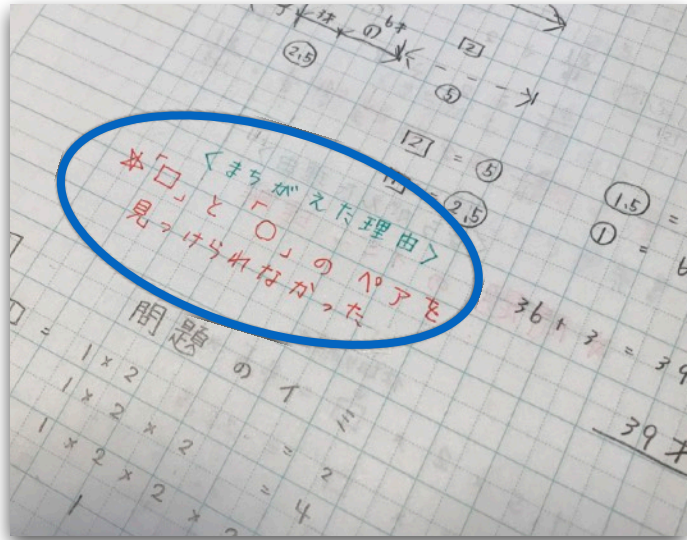 3才 の 6才
②.5
2
⑤
2 = ⑤
= 2.5
1.5 =
① =
<まちがえた理由>
※「□」と「○」のペアを
見つけられなかった
36 + 3 = 39
39才
問題のイミ
1 × 2 = 2
1 × 2 × 2 = 4
1 × 2 × 2 × 2
1